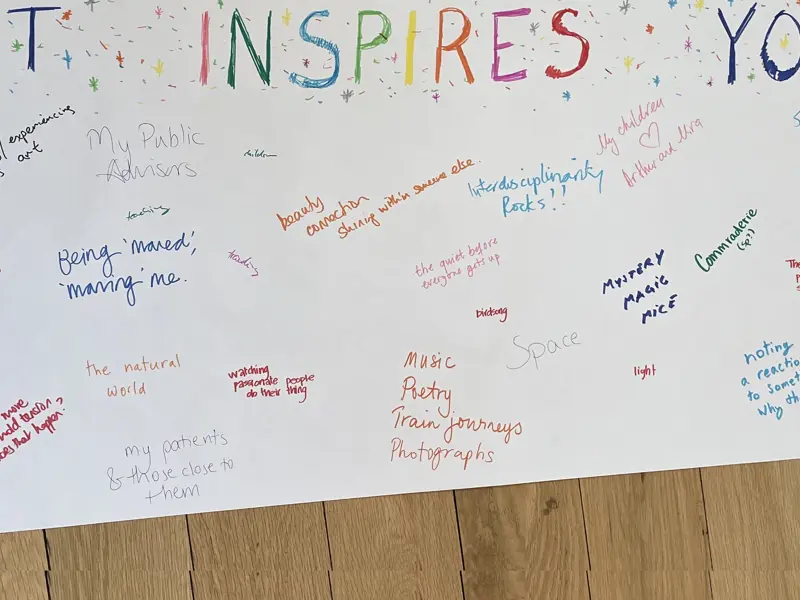 T INSPIRES YO
experiencing
art
My Public
Advisors
children
My children
Arthur and Mira
beauty
connection
shining within someone else.
Interdisciplinarity
Rocks!!
teaching
Being 'moved',
'moving' me.
teaching
the quiet before
everyone gets up
Commraderie
(sp?)
MYSTERY
MAGIC
MICE
birdsong
Space
the natural
world
watching
passionate people
do their thing
Music
Poetry
Train journeys
Photographs
light
noting
a reactio
to somet
why th
more
hold tension?
does that happen?
my patients
& those close to
them